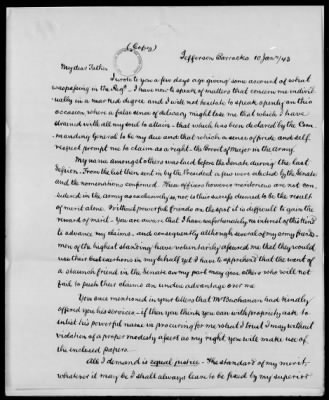 (Copy)
Jefferson Barracks 10 Jany/43
My dear Father
I wrote to you a few days ago giving some account of what
was passing in the Regt. I have now to speak of matters that concern me individ-
ually in a marked degree and I will not hesitate to speak openly on this
occasion where a false sense of delicacy might lose me that which I have
strained with all my soul to attain - that which has been declared by the Com-
manding General to be my due and that which a sense of pride and self
respect prompt me to claim as a right - the Brevet of Major in the Army.
My name amongst others was laid before the Senate during the last
Session. From the list then sent in by the President a few were selected by the Senate
and the nominations confirmed. These officers however meritorious are not con-
sidered in the army as exclusively so, nor is their success claimed to be the result
of merit alone. Without powerful friends on the spot it is difficult to gain the
reward of merit. You are aware that I have unfortunately no interest of this kind
to advance my claims, and consequently although several of my army friends
men of the highest standing have voluntarily assured me that they would
use their best exertions in my behalf yet I have to apprehend that the want of
a staunch friend in the Senate on my part may give others who will not
fail to push their claims an undue advantage over me
You once mentioned in your letters that Mr Buchanan had kindly
offered you his services - if then you think you can with propriety ask to
enlist his powerful name in procuring for me what I trust I may without
violation of a proper modesty assert as my right you will make use of
the enclosed papers.
All I demand is equal justice - The standard of my merit,
whatever it may be I shall always leave to be fixed by my superior